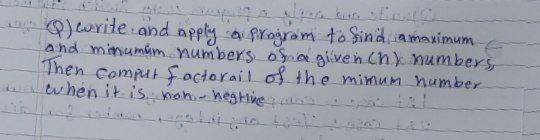 Q) write and apply a program to find a maximum
and minumum numbers of a given (n) numbers,
Then comput factorail of the mimum number
when it is non-negtive